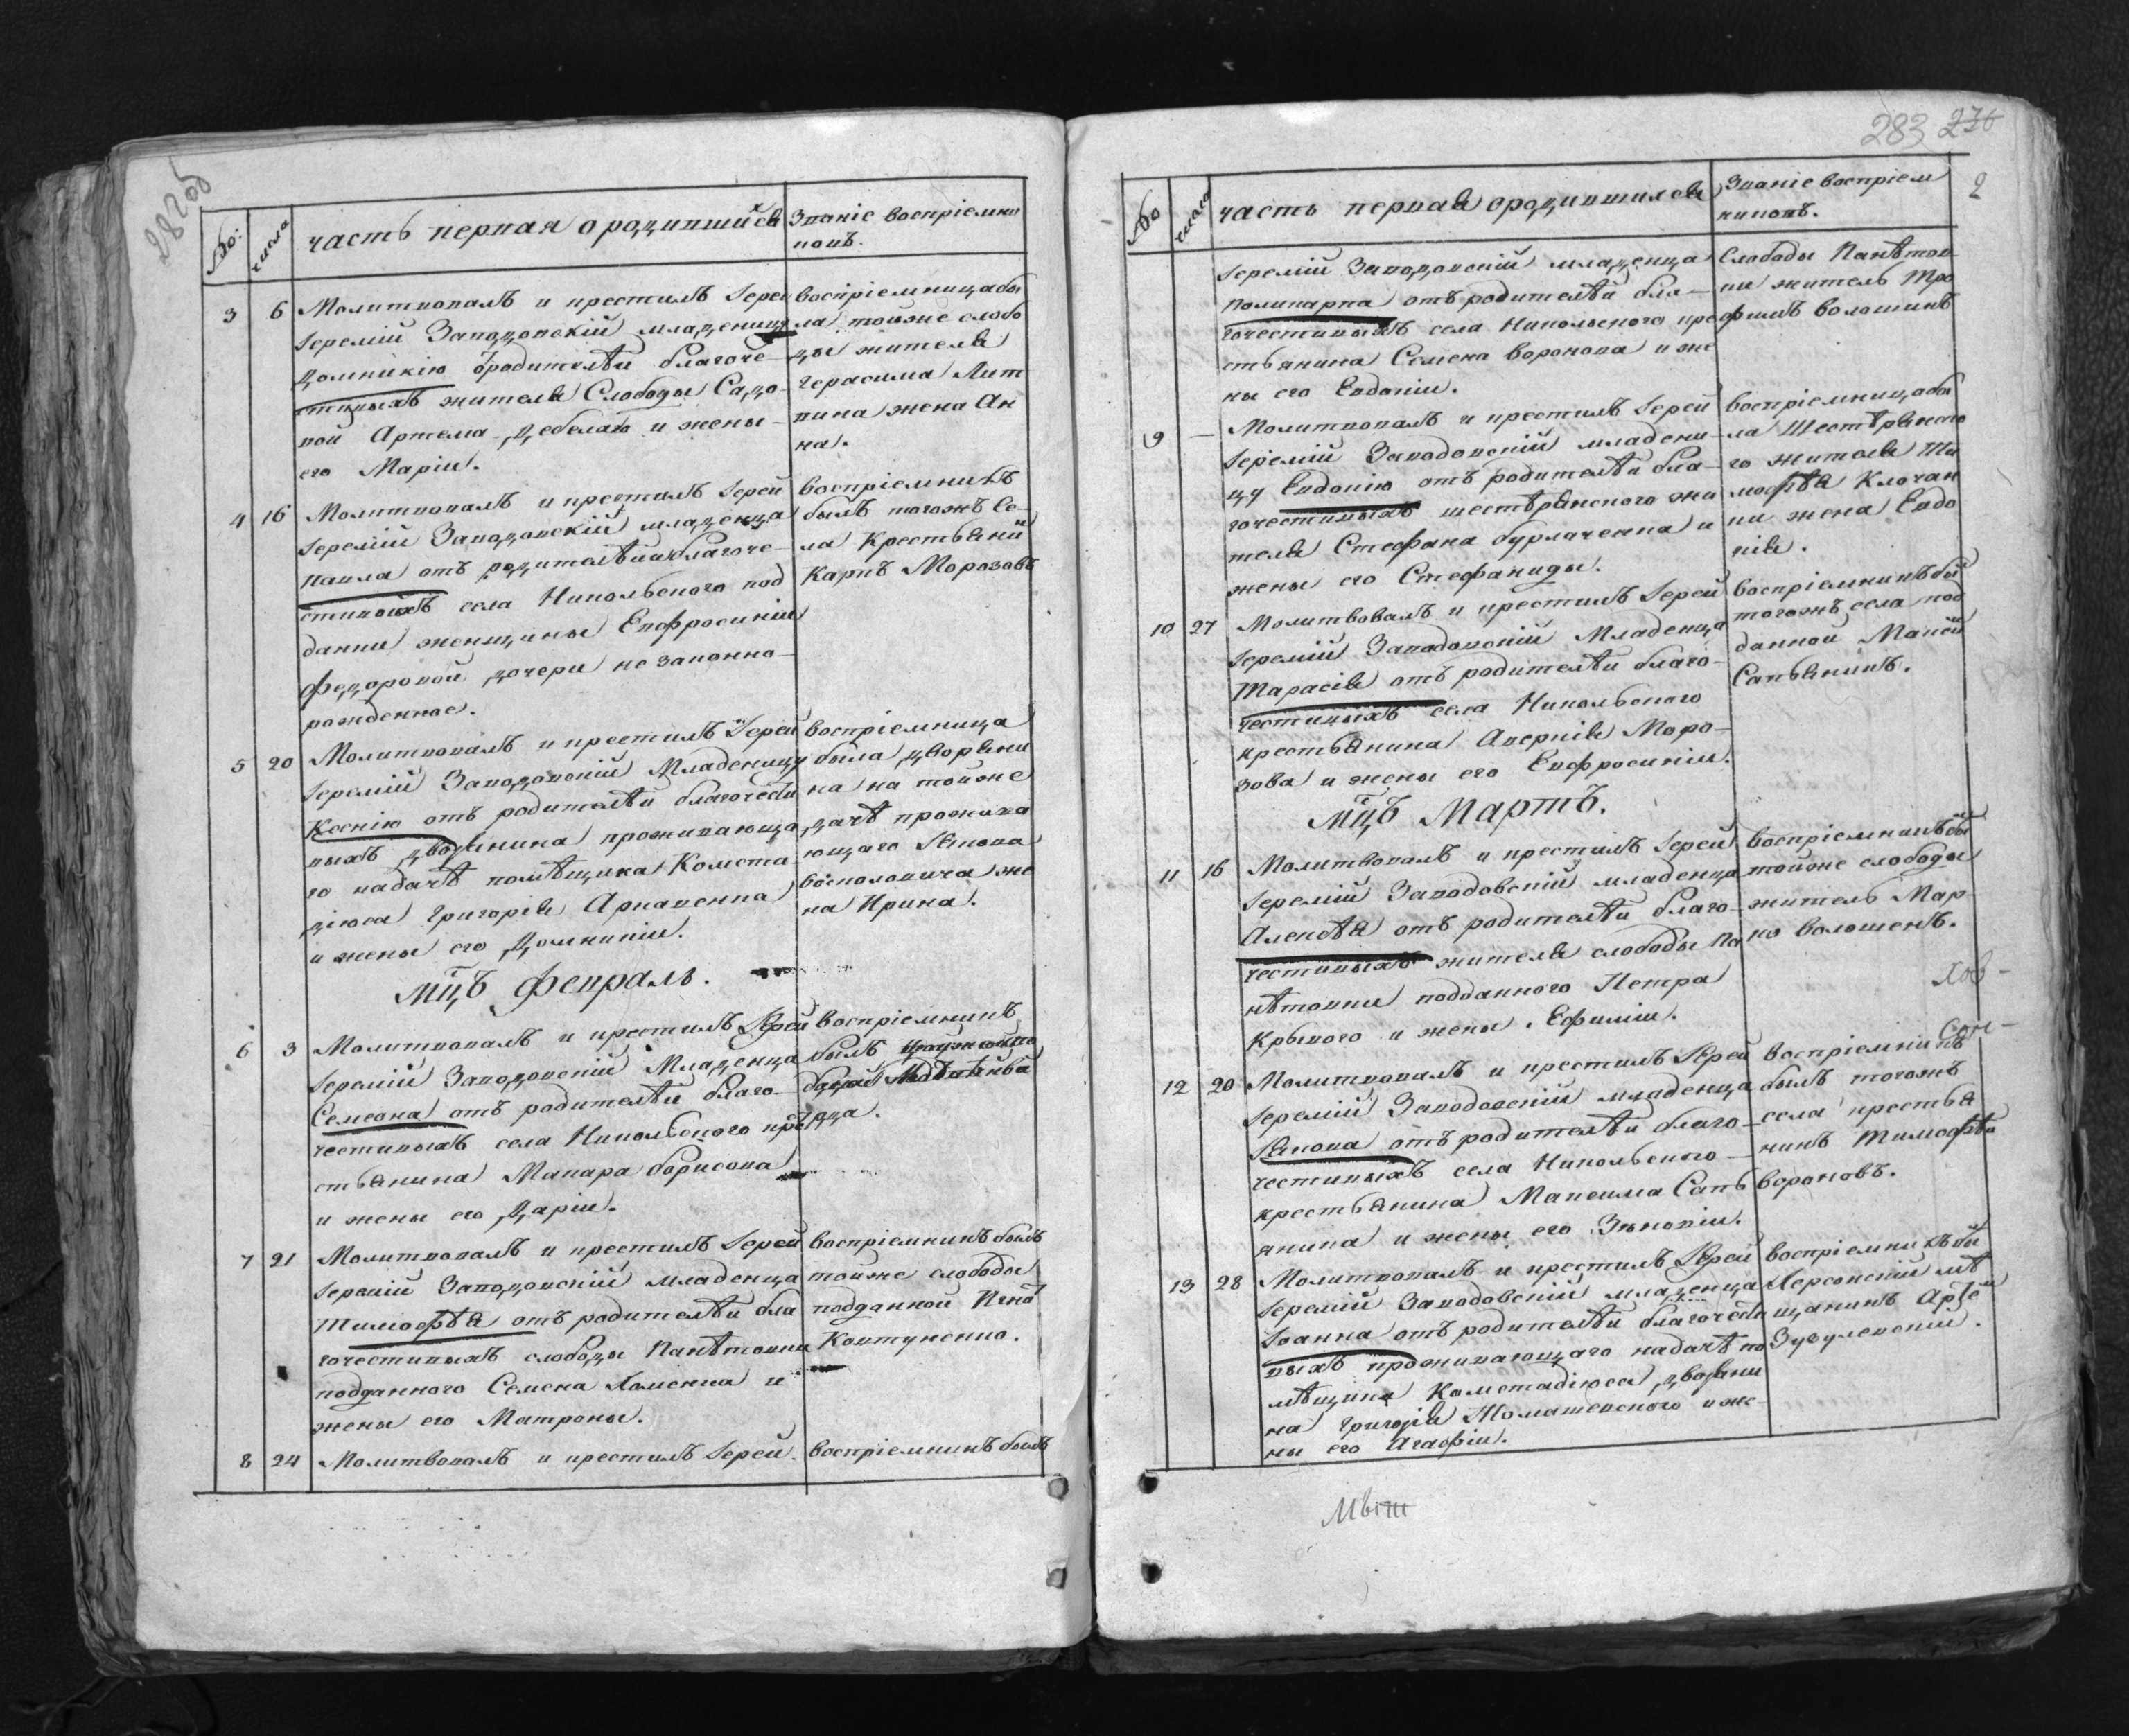 282об
№:
числа
часть первая о родившихся
Званіе воспріемни
ковъ.
3
6
Молитвовалъ и крестилъ Іерей
Іеремій Заводовскій младеницу
Домникію от родителѣй благоче-
стивыхъ жителя Слободы Садо-
вой Артема Дебелаго и жены
его Маріи.
воспріемница бы
ла тойже слобо
ды жителя
Герасима Лит
вина жена Ан
на.
4
16
Молитвовалъ и крестилъ Іерей
Іеремій Заводовскій младенца
Павла отъ родителѣй благоче-
стивыхъ села Никольского под
данки женщины Евфросиніи
Федоровой дочери не законно-
рожденное.
воспріемникъ
былъ тогожъ Се-
ла Крестьянин
Карпъ Морозовъ
5
20
Молитвовалъ и крестилъ Іерей
Іеремій Заводовскій Младеницу
Ксенію отъ родителѣй благочести
выхъ дворянина проживающа
го на дачѣ помѣщика Комста
діюса Григорія Арнавенка
и жены его Домникіи.
воспріемница
была дворяни
на на тойже
дачѣ прожива
ющаго Якова
восполовича же
на Ирина.
Мцъ февраль.
6
3
Молитвовалъ и крестилъ Іерей
Іеремій Заводовскій Младенца
Семеона отъ родителѣй благо-
честивыхъ села Никольского кре
стьянина Макара борисова
и жены его Даріи.
воспріемникъ
былъ
7
21
Молитвовалъ и крестилъ Іерей
Іеремій Заводовскій младенца
Тимофѣя отъ родителѣй бла
гочестивыхъ слободы Панѣтовки
подданного Семена Хоменка и
жены его Матроны.
воспріемникъ былъ
тойже слободы
подданной Игнат
Ковтуненко.
8
24
Молитвовалъ и крестилъ Іерей
воспріемникъ былъ
283 276
2
№
число
часть первая о родившихся
Званіе воспріем
никовъ.
Іеремій Заводовскій младенца
Поликарпа отъ родителѣй бла-
гочестивыхъ села Никольского кре
стьянина Семена воронова и же
ны его Евдокіи.
Слободы Панѣтов
ки житель Тро
фимъ волошинъ
9
—
Молитвовалъ и крестилъ Іерей
Іеремій Заводовскій младени-
цу Евдокію отъ родителѣй бла-
гочестивыхъ шестѣрянского жи
теля Стефана бурлаченка и
жены его Стефаниды.
воспріемница бы
ла Шестѣрянско
го жителя Ти
мофѣя Клочан
ки жена Евдо
кія.
10
27
Молитвовалъ и крестилъ Іерей
Іеремій Заводовскій Младенца
Тарасія отъ родителѣй благо-
честивыхъ села Никольского
крестьянина Аверкія Моро-
зова и жены его Евфросиніи.
воспріемникъ был
тогожъ села под
данной Максим
Сапьянинъ.
Мцъ Мартъ.
11
16
Молитвовалъ и крестилъ Іерей
Іеремій Заводовскій младенца
Алексѣя отъ родителѣй благо-
честивыхъ жителя слободы Па
нѣтовки подданного Петра
Крывого и жены Ефиміи.
воспріемникъ был
тойже слободы
житель Мар-
ко волошенъ.
12
20
Молитвовалъ и крестилъ Іерей
Іеремій Заводовскій младенца
Якова отъ родителѣй благо-
честивыхъ села Никольского
крестьянина Максима Сапь
янина и жены его Зѣновіи.
воспріемникъ
былъ тогожъ
села крестья
нинъ Тимофѣй
вороновъ.
13
28
Молитвовалъ и крестилъ Іерей
Іеремій Заводовскій младенца
Іоанна отъ родителѣй благочести
выхъ проживающаго на дачѣ по
мѣщика Комстадіюса дворяни
на Григорія Томашевского и же-
ны его Агафіи.
воспріемникъ бы
Херсонскій мѣ
щанинъ Артем
Зугулевскій.